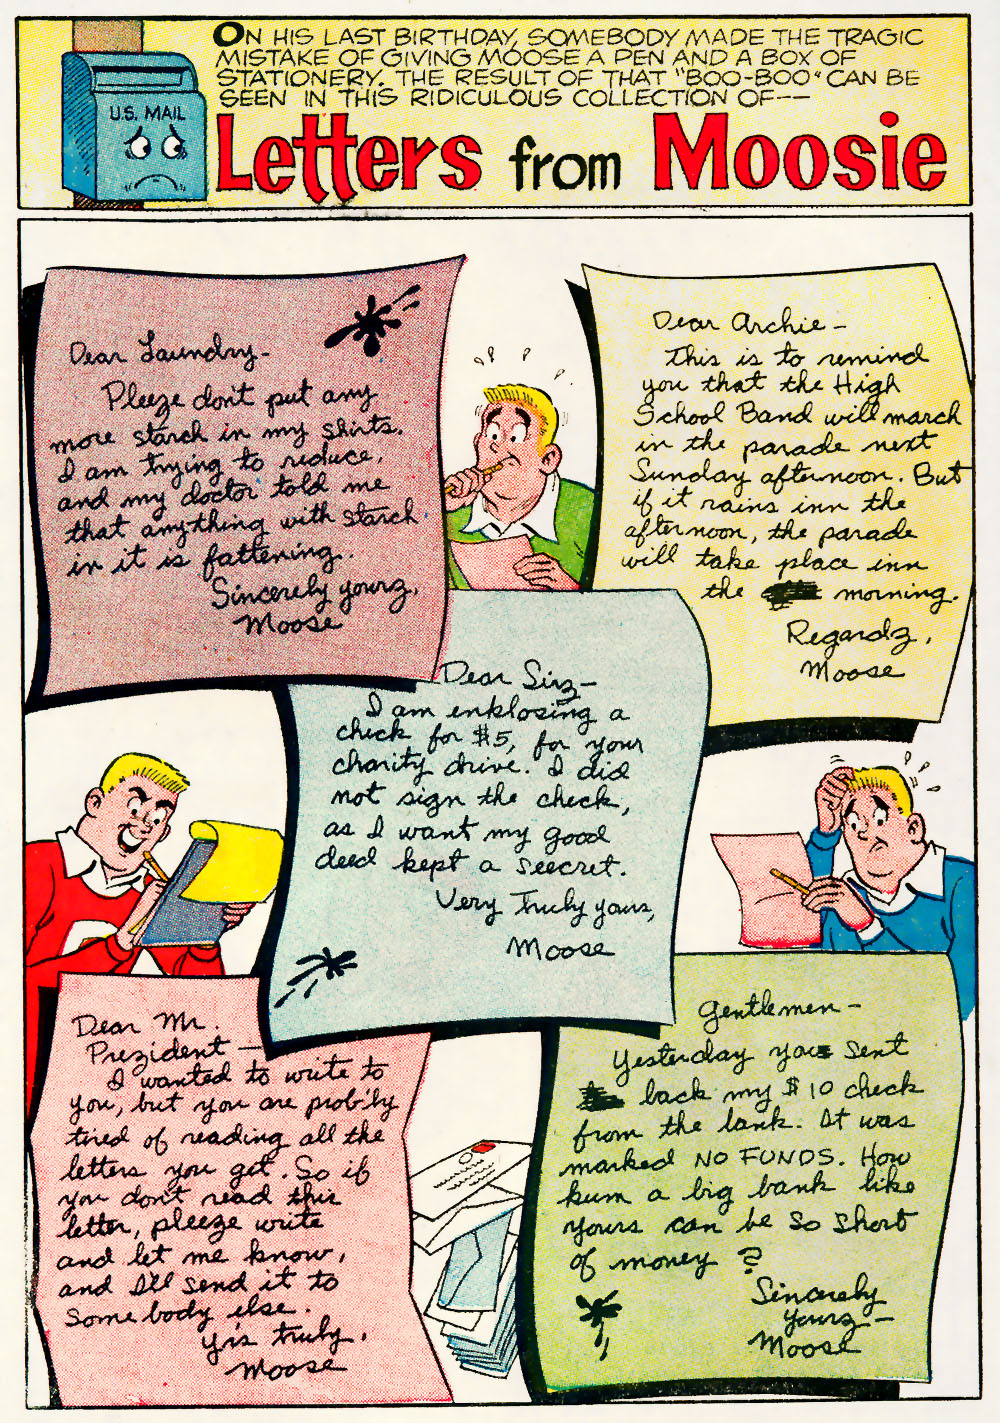 ON HIS LAST BIRTHDAY, SOMEBODY MADE THE TRAGIC
MISTAKE OF GIVING MOOSE A PEN AND A BOX OF
STATIONERY. THE RESULT OF THAT "BOO-BOO" CAN BE
SEEN IN THIS RIDICULOUS COLLECTION OF--
U.S. MAIL
Letters from Moosie
Dear Laundry-
Pleeze don't put any
more starch in my shirts.
I am trying to reduce,
and my doctor told me
that anything with starch
in it is fattening.
Sincerely yourz,
Moose
Dear Archie-
This is to remind
you that the High
School Band will march
in the parade next
Sunday afternoon. But
if it rains inn the
afternoon, the parade
will take place inn
the morning.
Regardz,
Moose
Dear Sirz-
I am enklosing a
check for $5, for your
charity drive. I did
not sign the check,
as I want my good
deed kept a seecret.
Very Truly yours,
Moose
Dear Mr.
Prezident-
I wanted to write to
you, but you are prob'ly
tired of reading all the
letters you get. So if
you don't read this
letter, pleeze write
and let me know,
and I'll send it to
somebody else.
Yris truly,
Moose
Gentlemen-
Yesterday you sent
back my $10 check
from the bank. It was
marked NO FUNDS. How
kum a big bank like
yours can be so short
of money?
Sincerely
yourz-
Moose